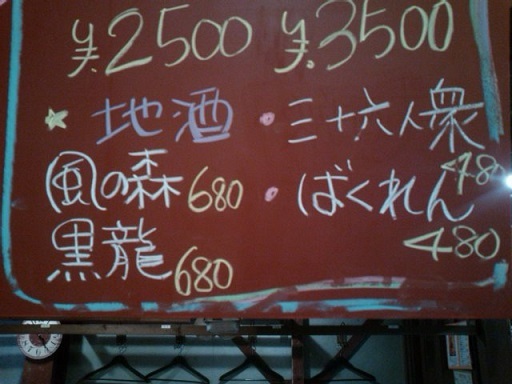 ¥2500 ¥3500
☆地酒
風の森 680
黒龍 680
・三十六人衆 480
・ばくれん 480